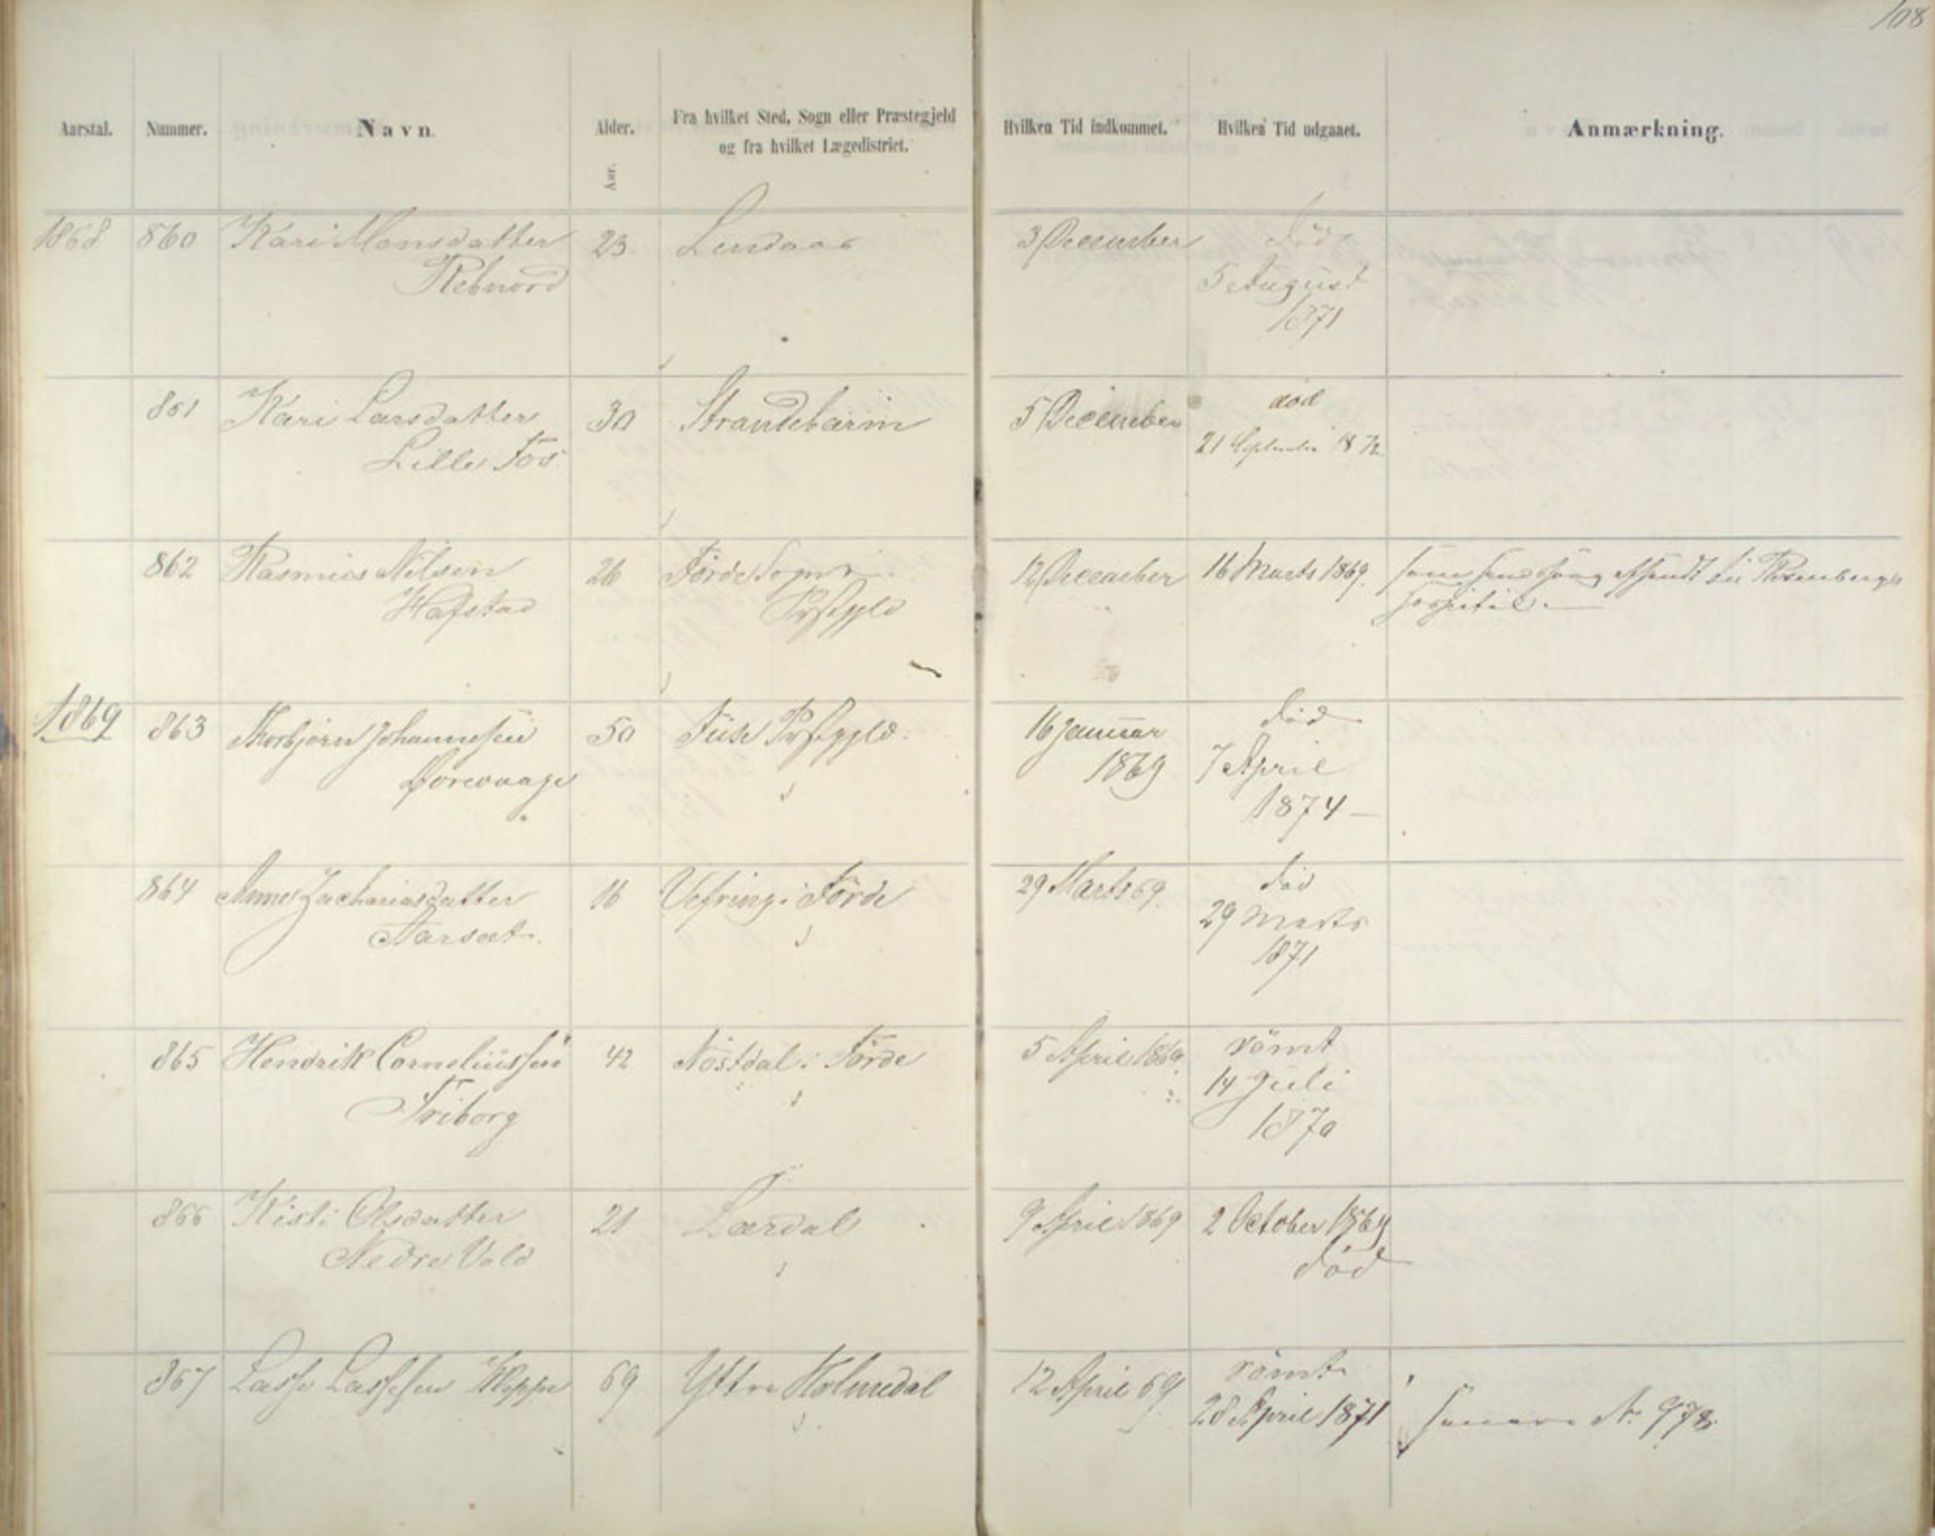 108
Aarstal. Nummer. Navn. Alder. Fra hvilket Sted, Sogn eller Præstegjeld Hvilken Tid indkommet. Hvilken Tid udgaaet. Anmærkning.
Aar. og fra hvilket Lægedistrict.
1868 860 Kari Monsdatter 23 Lindaas 3 December død
Rebnord 5 August
1871
861 Kari Larsdatter 30 Strandebarm 5 December død
Lille Fos 21 September 1872
862 Rasmus Nilsen 26 Förde Sogn 12 December 16 Marts 1869. Rosenbergs
Hafstad Præstgjeld hospital.
1869 863 Thorbjørn Johannesen 50 Fuse Præstgjeld. 16 Januar død
Dorevaage 1869 7 April
1874 —
864 Anne Zachariasdatter 16 Vefring i Förde 29 Marts 69. død
Aarsæt. 29 Marts
1871
865 Hendrik Corneliussen 42 Nöstdal i Förde 5 April 1869. römt
Friborg 14 Juli
1870
866 Kisti Olsdatter 21 Lærdal 9 April 1869 2 October 1869
Nedre Vold død
867 Lasse Lassesen Kleppe 69 Yttre Holmedal 12 April 69 römt
28 April 1871 N. 978.